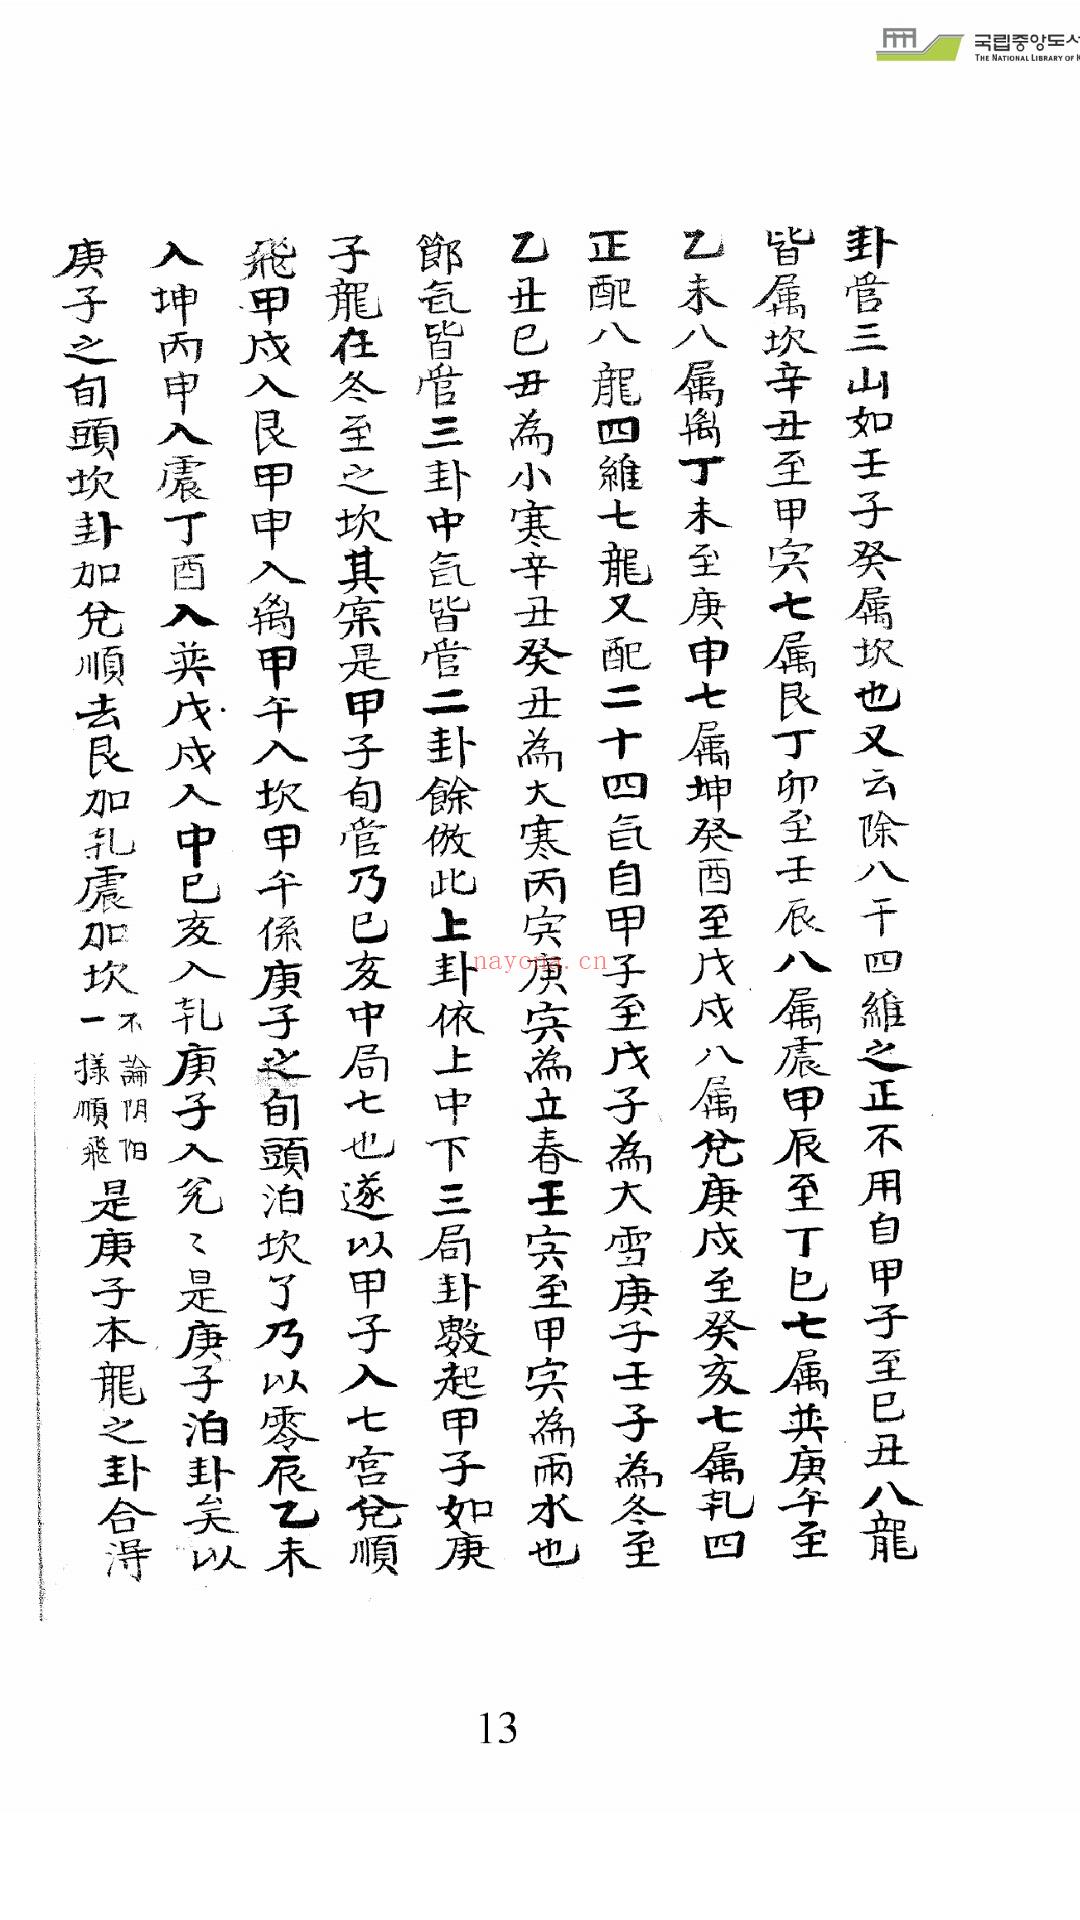 국립중앙도서
THE NATIONAL LIBRARY OF K
卦管三山如壬子癸属坎也又云除八干四維之正不用自甲子至己丑八龍
皆属坎辛丑至甲寅七属艮丁卯至壬辰八属震甲辰至丁巳七属巽庚午至
乙未八属离丁未至庚申七属坤癸酉至戊戌八属兌庚戌至癸亥七属乾四
正配八龍四維七龍又配二十四氣自甲子至戊子為大雪庚子壬子為冬至
乙丑己丑為小寒辛丑癸丑為大寒丙寅庚寅為立春壬寅至甲寅為雨水也
節气皆管三卦中氣皆管二卦餘倣此上卦依上中下三局卦數起甲子如庚
子龍在冬至之坎其案是甲子旬管乃巳亥中局七也遂以甲子入七宮兌順
飛甲戌入艮甲申入离甲午入坎甲午係庚子之旬頭泊坎了乃以零辰乙未
入坤丙申入震丁酉入巽戊戌入中己亥入乾庚子入兌〻是庚子泊卦矣以
庚子之旬頭坎卦加兌順去艮加乾震加坎不論阴阳一様順飛是庚子本龍之卦合淂
nayona.cn
13